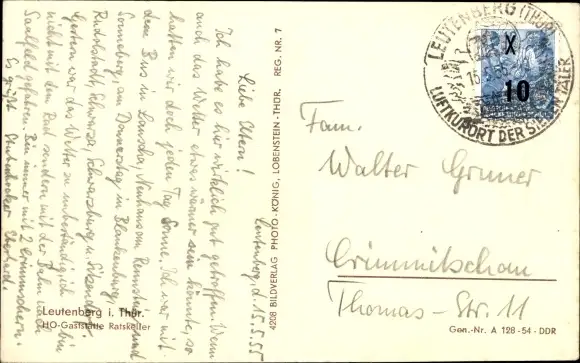 Leutenberg, d. 15.5.55
Liebe Eltern!
Ich habe es hier wirklich gut getroffen. Wenn
auch das Wetter etwas wärmer sein könnte, so
hatten wir doch jeden Tag Sonne. Ich war mit
dem Bus in Lauscha, Neuhaus am Rennsteig und
Sonneberg, am Donnerstag in Blankenburg,
Rudolstadt, Schwarza, Schwarzburg u.
Gestern war das Wetter so unbeständig, ich bin
nicht mit dem Rad sondern mit der Bahn nach
Saalfeld gefahren. Bin immer mit 2 Crimmitschern.
Es grüßt Eberhard.
Leutenberg i. Thür.
HO-Gaststätte Ratskeller
4208 BILDVERLAG PHOTO-KÖNIG, LOBENSTEIN-THÜR. REG. NR. 7
LEUTENBERG (THÜR)
LUFTKURORT DER SIEBEN TÄLER
X
10
Fam.
Walter Gruner
Crimmitschau
Thomas-Str. 11
Gen.-Nr. A 128-54-DDR